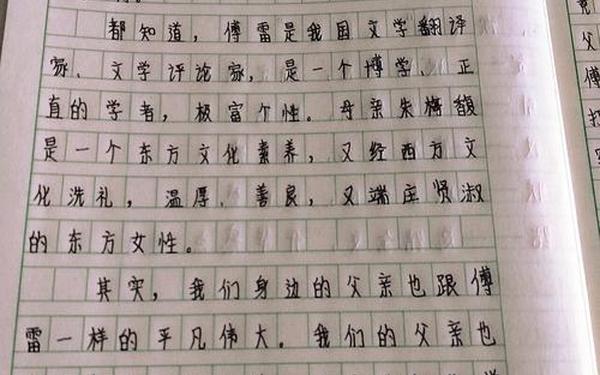 都知道，傅雷是我国文学翻译
家、文学评论家，是一个博学、正
直的学者，极富个性。母亲朱梅馥
是一个东方文化素养，又经西方文
化洗礼，温厚、善良，又端庄贤淑
的东方女性。
其实，我们身边的父亲也跟傅
雷一样的平凡伟大。我们的父亲也